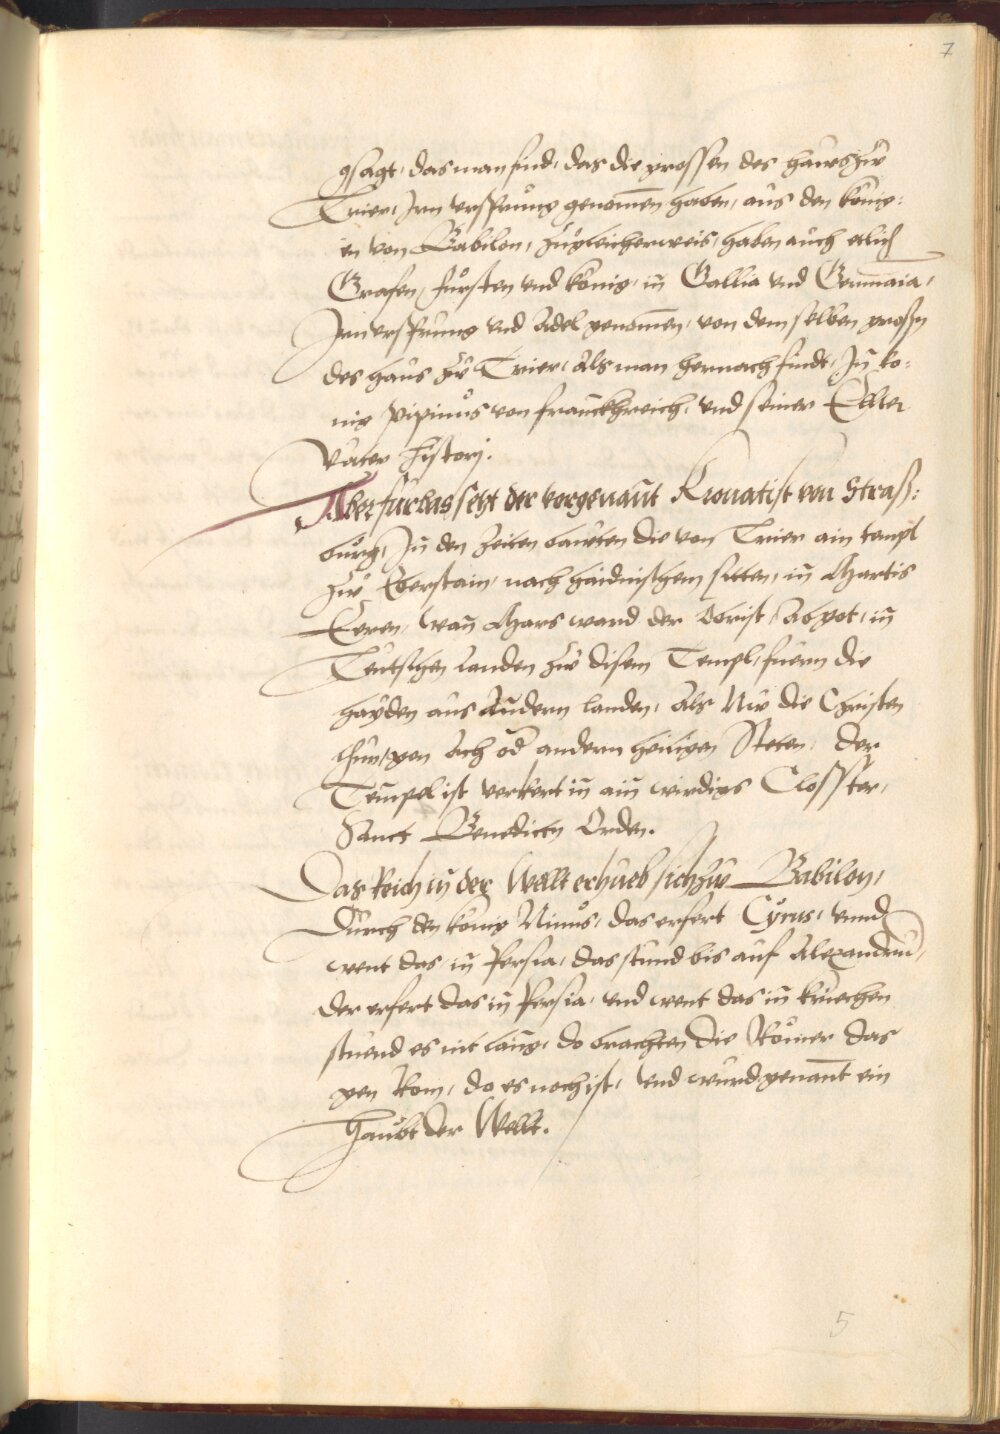 7
gsagt, das man find, das die grossen des haus zů
Trier, Jrn ursprung genomen haben, aus den künig:
in von Babilon, zůgleicherweis, haben auch etlich
Grafen, fürsten und künig, in Gallia und Germania,
Jrn ursprung und Adel genomen, von dem selben grossn
des haus zů Trier, Als man hernach findt, Jn ko:
nig Pipinus von Franckhreich, und seiner Ellter
Vater Histori.
Aber fürbas setzt der vorgenant Kronatist von Straß:
burg, Jn den Zeiten bauten die von Trier ain templ
zů Eberstain, nach haidnischem sitten, in Martis
Eeren, wan Mars ward der Obrist, Abgot, in
Teutschen Landen zů disem Templ, fuern die
hayden aus Andern landen, Als Nu die Christen
thun, gen Ach od andern heiligen Steten, der
Tempel ist verkert in ain wirdigs Closster,
Sanct Benedicten Orden.
Das Reich in der Wellt erhueb sich zů Babilon,
Durch den künig Ninus, das erfert Cyrus, unnd
went das, in Persia, das stund bis auf Alexandru,
der erfert das in Persia, und went das in kriechen
stuend es nit lang, do brachten die Römer das
gen Rom, do es noch ist, und wurd genant ein
Haubt der Wellt.
5